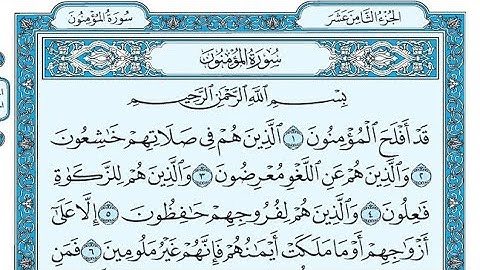 الجُزْءُ الثَّامِنَ عَشَرَ
سُورَةُ المُؤْمِنُونَ
سُورَةُ المُؤْمِنُونَ
بِسْمِ اللَّهِ الرَّحْمَٰنِ الرَّحِيمِ
قَدْ أَفْلَحَ الْمُؤْمِنُونَ ١ الَّذِينَ هُمْ فِي صَلَاتِهِمْ خَاشِعُونَ
٢ وَالَّذِينَ هُمْ عَنِ اللَّغْوِ مُعْرِضُونَ ٣ وَالَّذِينَ هُمْ لِلزَّكَوٰةِ
فَاعِلُونَ ٤ وَالَّذِينَ هُمْ لِفُرُوجِهِمْ حَافِظُونَ ٥ إِلَّا عَلَىٰ
أَزْوَاجِهِمْ أَوْ مَا مَلَكَتْ أَيْمَانُهُمْ فَإِنَّهُمْ غَيْرُ مَلُومِينَ ٦ فَمَنِ